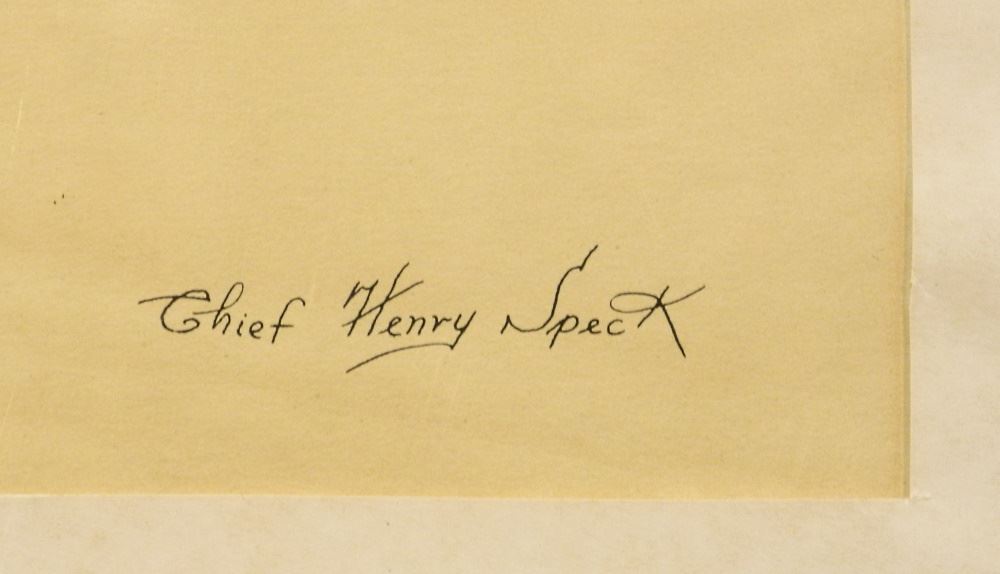 Chief Henry Speck